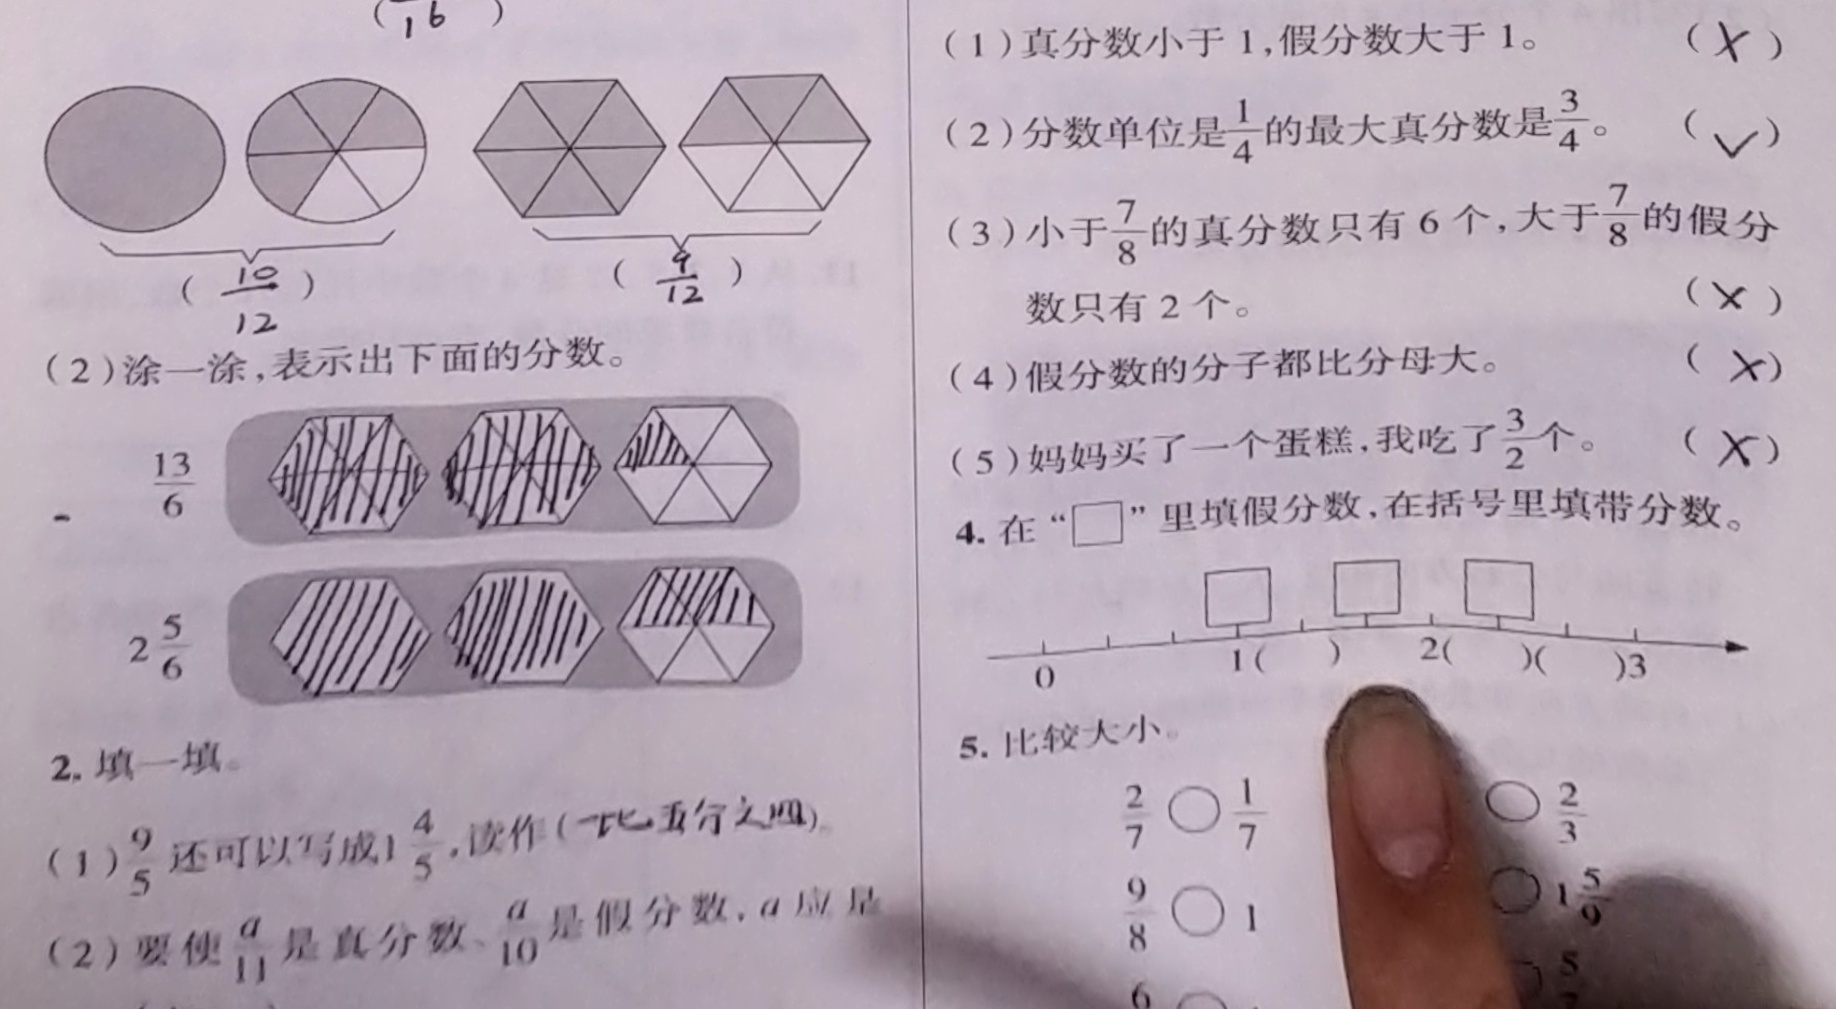 ( /16 )
( 10/12 ) ( 9/12 )
(2)涂一涂,表示出下面的分数。
13/6
2 5/6
2. 填一填。
(1) 9/5 还可以写成1 4/5,读作(一匕五分之四)。
(2)要使 a/11 是真分数、a/10 是假分数,a应是
(1)真分数小于1,假分数大于1。 (X)
(2)分数单位是 1/4 的最大真分数是 3/4。 (✓)
(3)小于 7/8 的真分数只有6个,大于 7/8 的假分
数只有2个。 (X)
(4)假分数的分子都比分母大。 (X)
(5)妈妈买了一个蛋糕,我吃了 3/2 个。 (X)
4. 在“□”里填假分数,在括号里填带分数。
0 1( ) 2( )( )3
5. 比较大小。
2/7 ○ 1/7 ○ 2/3
9/8 ○ 1 ○ 1 5/9
6 ○ 5